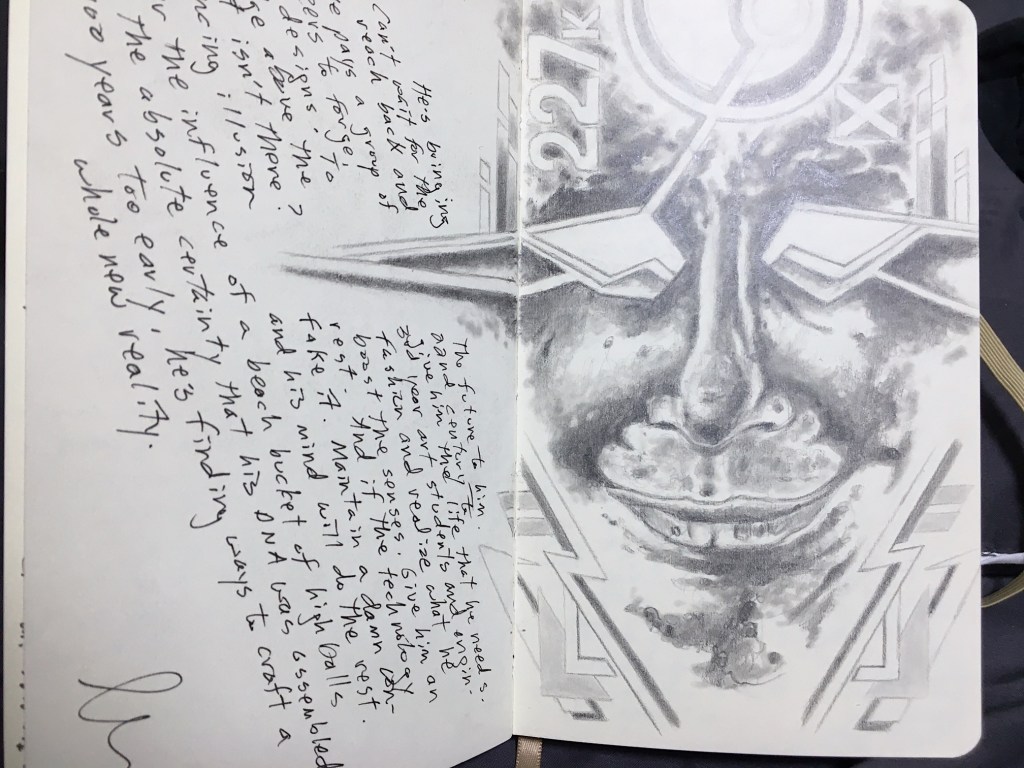 He's bringing The future to him.
can't wait for the 22nd century to
reach back and give him the life that he needs.
pays a group of 3rd year art students and engin-
eers to forge, fashion and realize what he
designs. To boost the senses. Give him an
above the rest. And if the technology
isn't there? fake it. Maintain a damn con-
illusion and his mind will do the rest.
the influence of a beach bucket of high balls
the absolute certainty that his DNA was assembled
years too early, he's finding ways to craft a
whole new reality.
227K
IX